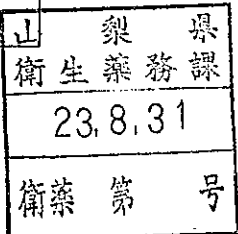 山梨県
衛生薬務課
23.8.31
衛薬第 号